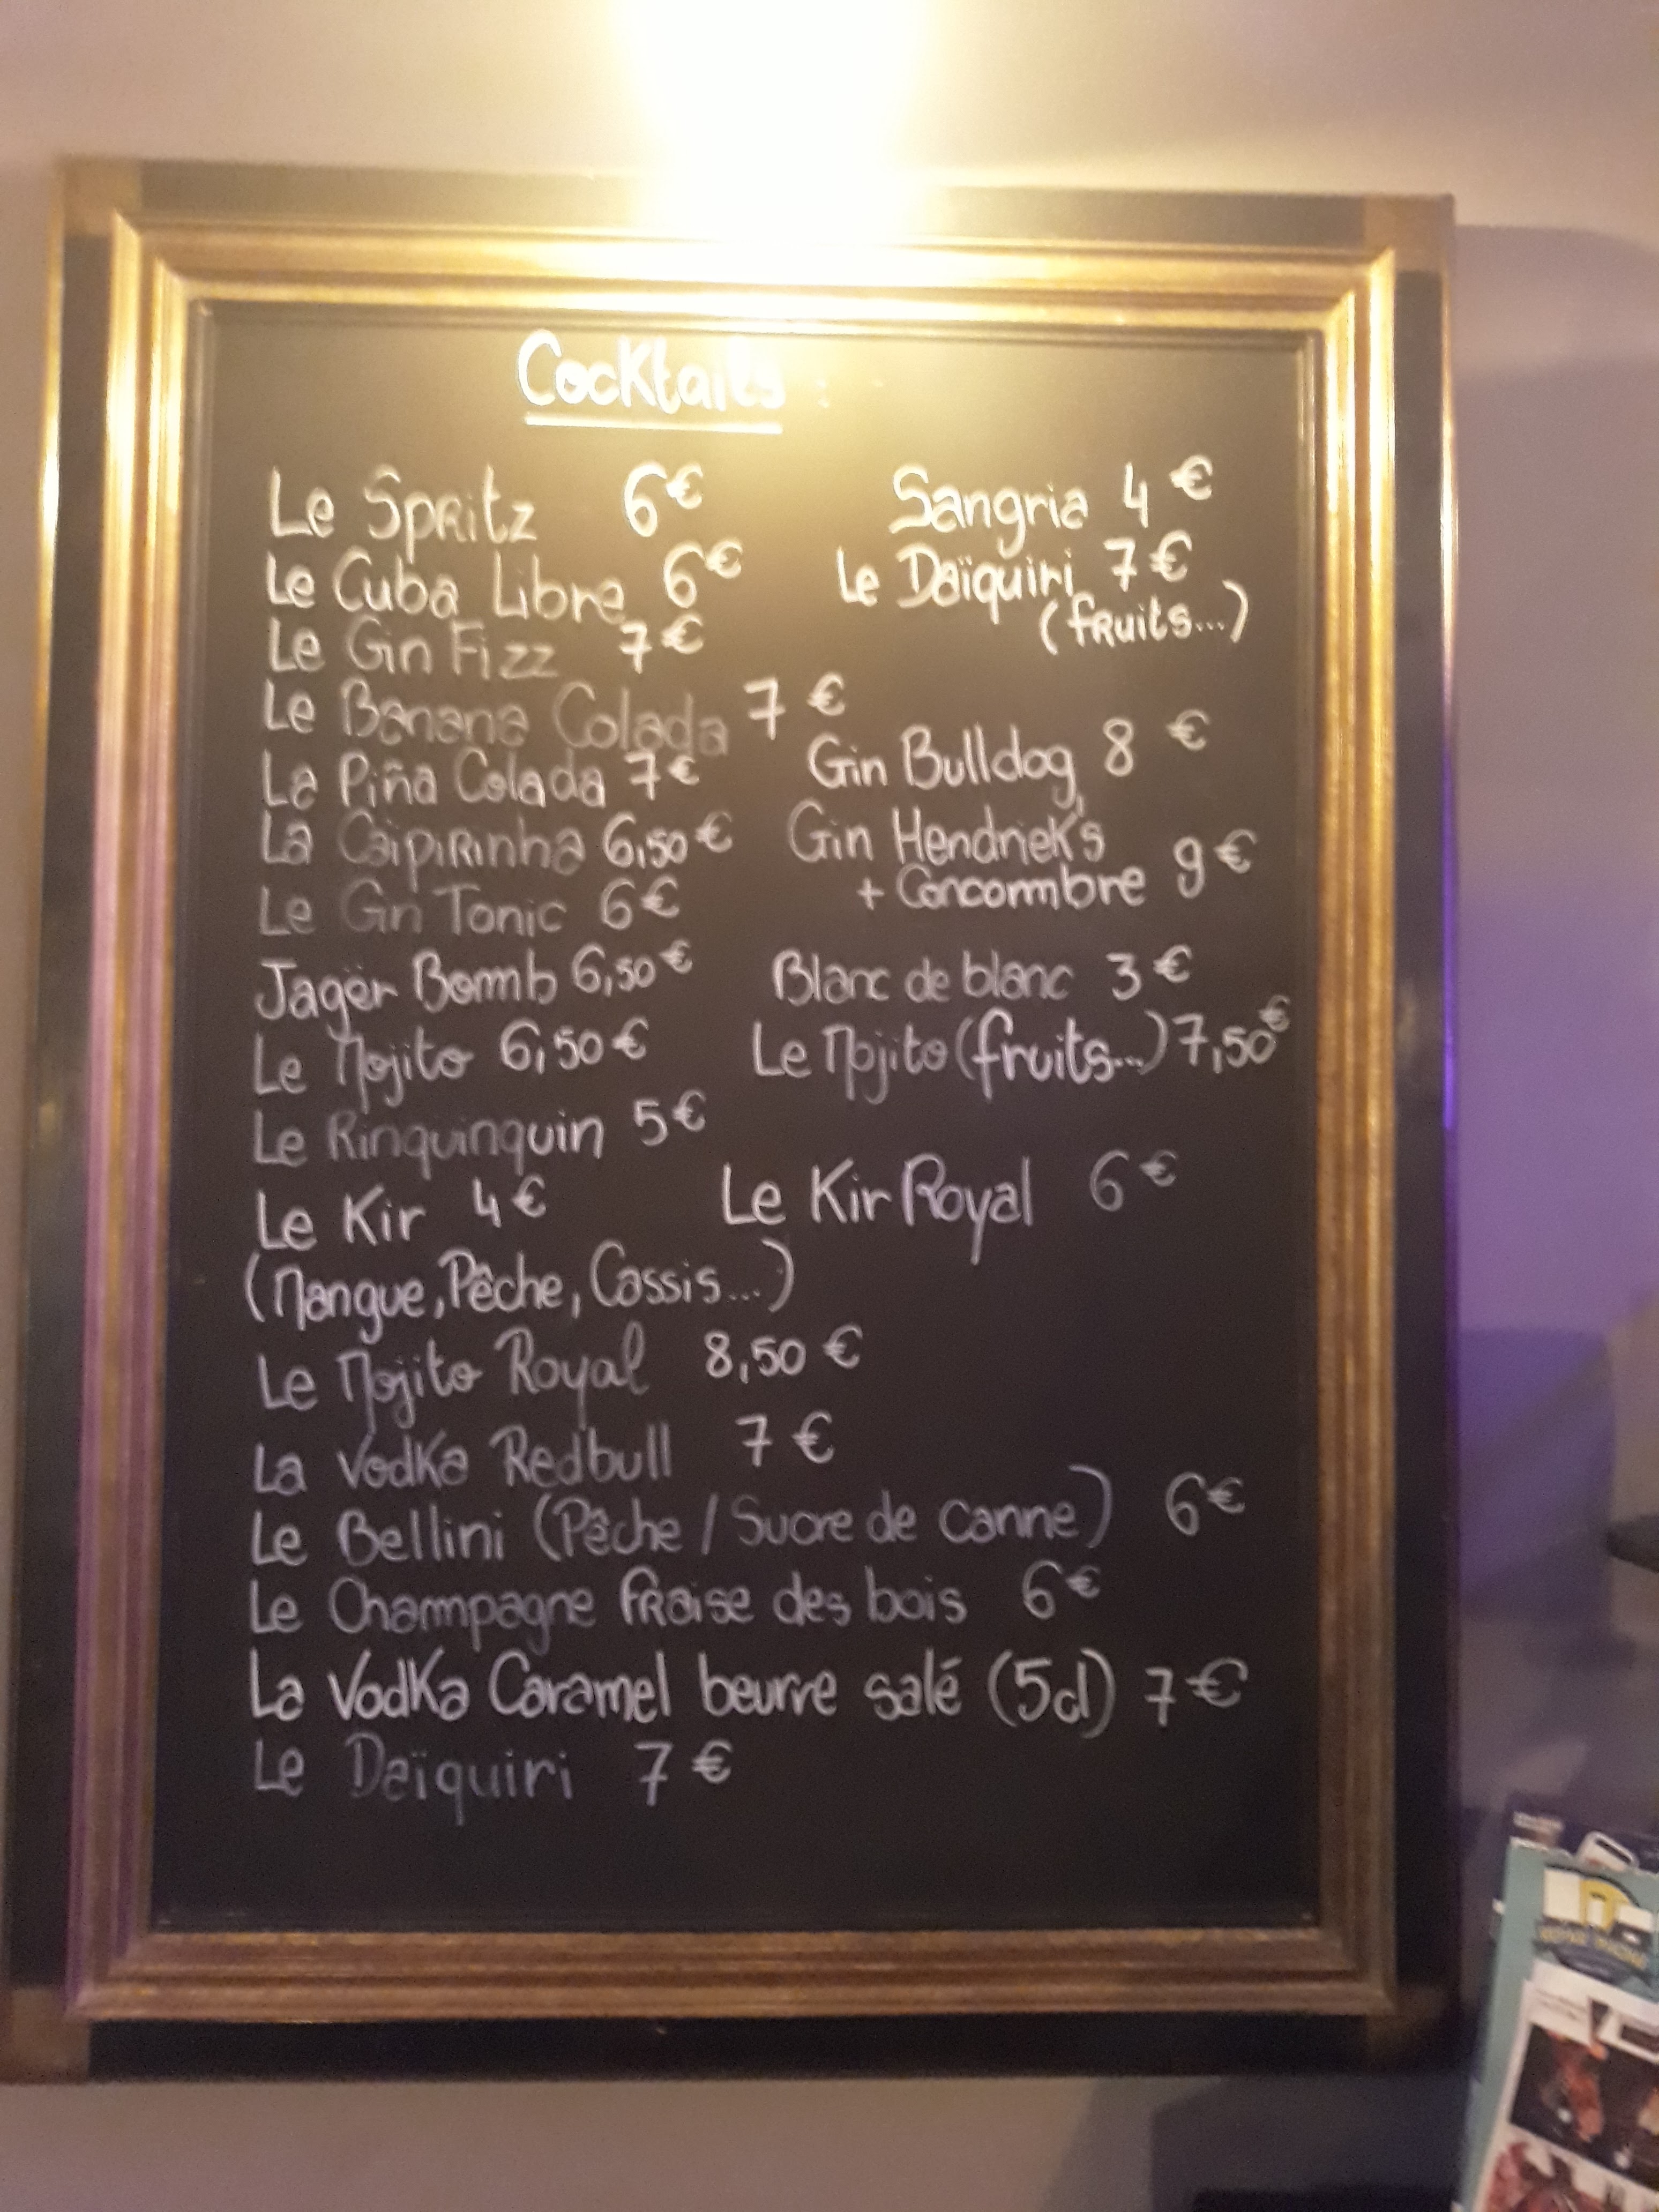 Cocktails :
Le Spritz 6€
Sangria 4€
Le Cuba Libre 6€
Le Daïquiri 7€
(fruits...)
Le Gin Fizz 7€
Le Banana Colada 7€
Gin Bulldog 8€
La Piña Colada 7€
La Caïpirinha 6,50€
Gin Hendrick's
+ Concombre 9€
Le Gin Tonic 6€
Jagër Bomb 6,50€
Blanc de blanc 3€
Le Mojito 6,50€
Le Mojito (fruits...) 7,50€
Le Rinquinquin 5€
Le Kir 4€
Le Kir Royal 6€
(Mangue, Pêche, Cassis...)
Le Mojito Royal 8,50€
La Vodka Redbull 7€
Le Bellini (Pêche / Sucre de canne) 6€
Le Champagne fraise des bois 6€
La Vodka Caramel beurre salé (5cl) 7€
Le Daïquiri 7€